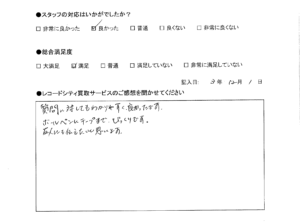 ●スタッフの対応はいかがでしたか？
□ 非常に良かった ☑ 良かった □ 普通 □ 良くない □ 非常に良くない
●総合満足度
□ 大満足 ☑ 満足 □ 普通 □ 満足していない □ 非常に満足していない
記入日 年 12月 1日
●レコードシティ買取サービスのご感想を聞かせてください
質問に対してもわかりやすく良かったです。
ボールペン、テープまで、びっくりです。
友人にも伝えたいと思います。